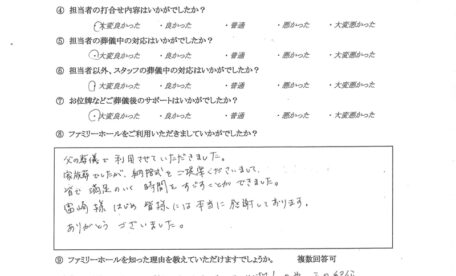 ④ 担当者の打合せ内容はいかがでしたか?
・大変良かった ・良かった ・普通 ・悪かった ・大変悪かった
⑤ 担当者の葬儀中の対応はいかがでしたか?
・大変良かった ・良かった ・普通 ・悪かった ・大変悪かった
⑥ 担当者以外、スタッフの葬儀中の対応はいかがでしたか?
・大変良かった ・良かった ・普通 ・悪かった ・大変悪かった
⑦ お位牌などご葬儀後のサポートはいかがでしたか?
・大変良かった ・良かった ・普通 ・悪かった ・大変悪かった
⑧ ファミリーホールをご利用いただきましていかがでしたか?
父の葬儀で利用させていただきました。
家族葬でしたが、納棺式をご提案くださいまして、
皆で満足のいく時間をすごすことができました。
様はじめ皆様には本当に感謝しております。
ありがとうございました。
⑨ ファミリーホールを知った理由を教えていただけますでしょうか。 複数回答可